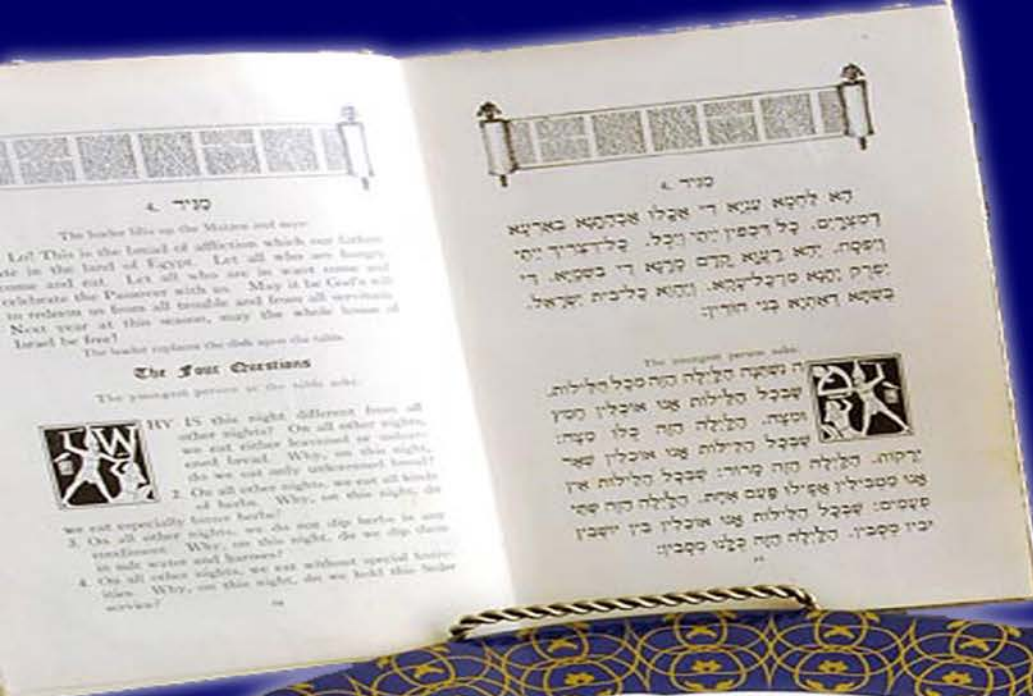 4. מגיד
The leader lifts up the Matzos and says:
Lo! This is the bread of affliction which our fathers
ate in the land of Egypt. Let all who are hungry
come and eat. Let all who are in want come and
celebrate the Passover with us. May it be God's will
to redeem us from all trouble and from all servitude.
Next year at this season, may the whole house of
Israel be free!
The leader replaces the dish upon the table.
The Four Questions
The youngest person at the table asks:
WHY IS this night different from all
other nights? On all other nights,
we eat either leavened or unleav-
ened bread. Why, on this night,
do we eat only unleavened bread?
2. On all other nights, we eat all kinds
of herbs. Why, on this night, do
we eat especially bitter herbs?
3. On all other nights, we do not dip herbs in any
condiment. Why, on this night, do we dip them
in salt water and
4. On all other nights, we eat without special
Why, on this night, do we hold this Seder
service?
4. מגיד
הָא לַחְמָא עַנְיָא דִּי אֲכָלוּ אַבְהָתָנָא בְּאַרְעָא
דְמִצְרָיִם. כָּל דִּכְפִין יֵיתֵי וְיֵכָל. כָּל־דִּצְרִיךְ יֵיתֵי
וְיִפְסַח. יְהֵא רַעֲוָא קֳדָם מָרָנָא דִּי בִשְׁמַיָּא. דִּי
יִפְרֹק יָתָנָא
בְּשַׁתָּא דְאָתְיָא בְּנֵי חוֹרִין:
The youngest person asks:
ה נִּשְׁתַּנָּה הַלַּיְלָה הַזֶּה מִכָּל הַלֵּילוֹת,
שֶׁבְּכָל הַלֵּילוֹת אָנוּ אוֹכְלִין חָמֵץ
וּמַצָּה. הַלַּיְלָה הַזֶּה כֻּלּוֹ מַצָּה:
שֶׁבְּכָל הַלֵּילוֹת אָנוּ אוֹכְלִין שְׁאָר
יְרָקוֹת. הַלַּיְלָה הַזֶּה מָרוֹר: שֶׁבְּכָל הַלֵּילוֹת אֵין
אָנוּ מַטְבִּילִין אֲפִילוּ פַּעַם אֶחָת. הַלַּיְלָה הַזֶּה שְׁתֵּי
פְעָמִים: שֶׁבְּכָל הַלֵּילוֹת אָנוּ אוֹכְלִין בֵּין יוֹשְׁבִין
וּבֵין מְסֻבִּין. הַלַּיְלָה הַזֶּה כֻּלָּנוּ מְסֻבִּין: